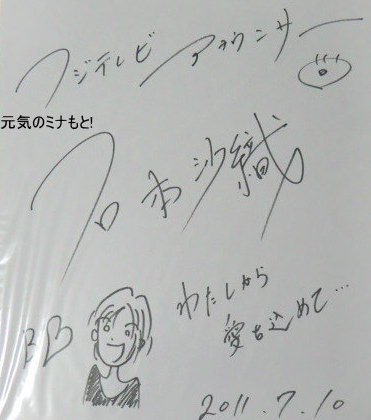 フジテレビ アナウンサー
元気のミナもと!
石本沙織
わたしから
愛を込めて…
2011.7.10